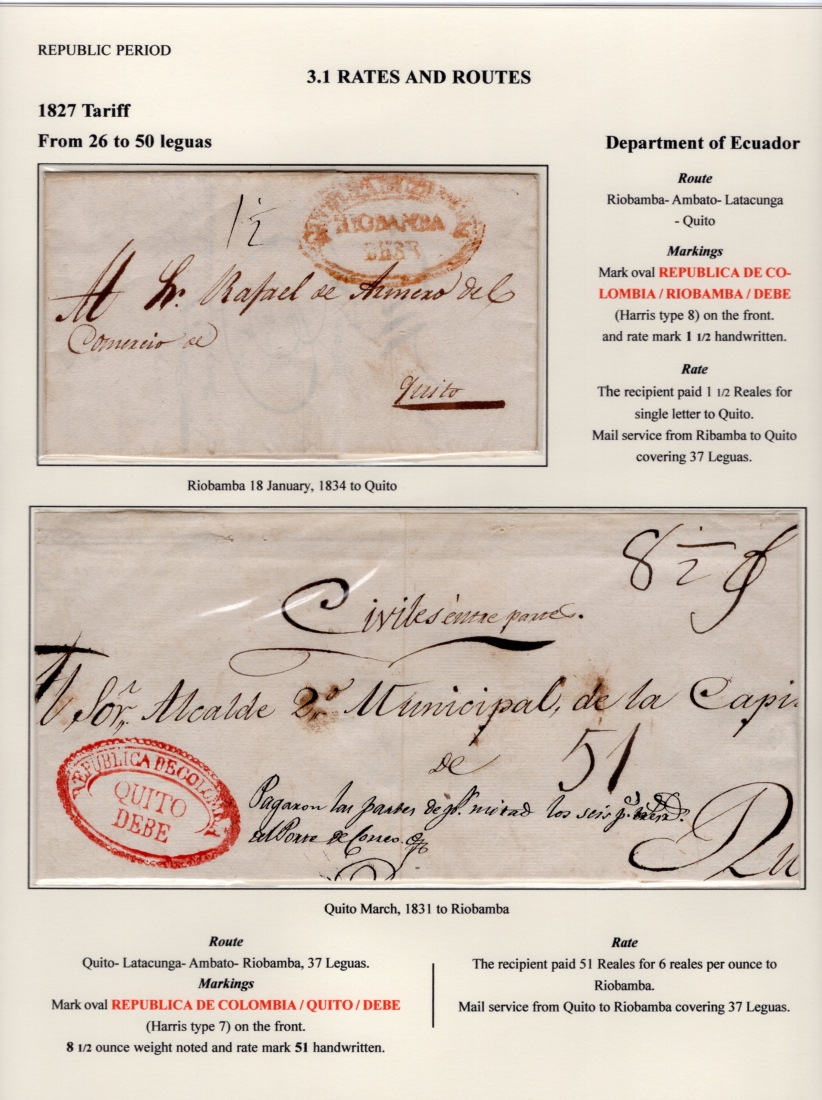 REPUBLIC PERIOD
3.1 RATES AND ROUTES
1827 Tariff
From 26 to 50 leguas
Department of Ecuador
1½
RIOBAMBA
DEBE
Al Sr. Rafael de Armero del
Comercio de
Quito
Route
Riobamba- Ambato- Latacunga
- Quito
Markings
Mark oval REPUBLICA DE CO-
LOMBIA / RIOBAMBA / DEBE
(Harris type 8) on the front.
and rate mark 1 1/2 handwritten.
Rate
The recipient paid 1 1/2 Reales for
single letter to Quito.
Mail service from Ribamba to Quito
covering 37 Leguas.
Riobamba 18 January, 1834 to Quito
8½
Civiles entre partes.
Al Sor. Alcalde 2º Municipal, de la Capi
de 51
REPUBLICA DE COLOMBIA
QUITO
DEBE
Pagaron las partes de pr. mitad los seis p.
el Porte de Correo.
Quito March, 1831 to Riobamba
Route
Quito- Latacunga- Ambato- Riobamba, 37 Leguas.
Markings
Mark oval REPUBLICA DE COLOMBIA / QUITO / DEBE
(Harris type 7) on the front.
8 1/2 ounce weight noted and rate mark 51 handwritten.
Rate
The recipient paid 51 Reales for 6 reales per ounce to
Riobamba.
Mail service from Quito to Riobamba covering 37 Leguas.